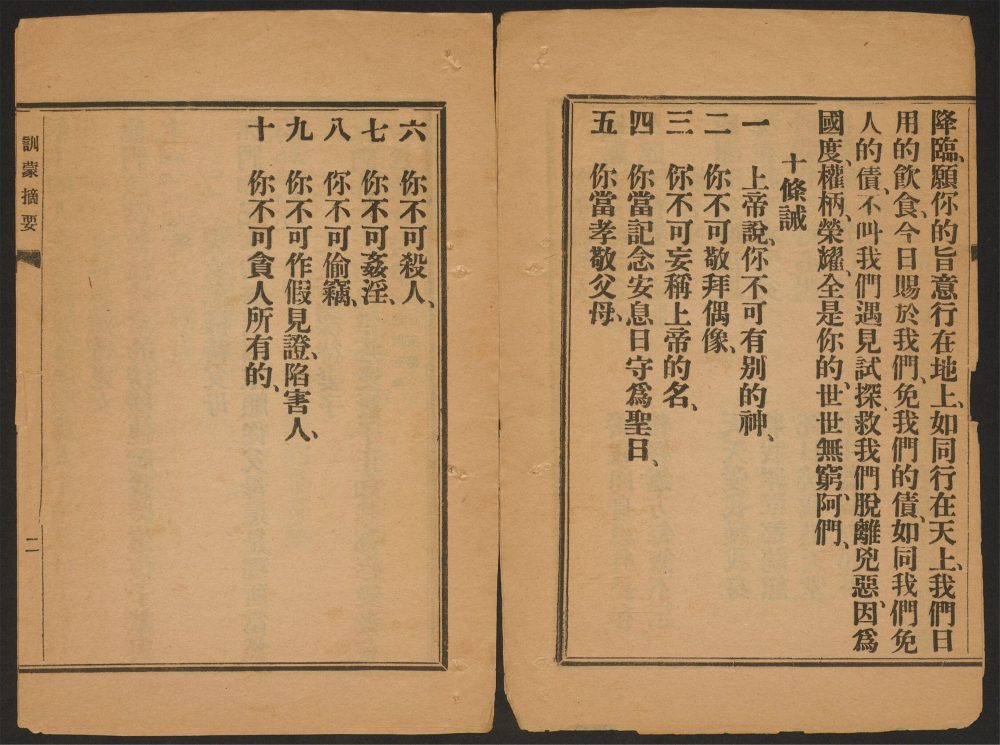 降臨、願你的旨意行在地上、如同行在天上、我們日
用的飲食、今日賜於我們、免我們的債、如同我們免
人的債、不叫我們遇見試探、救我們脫離兇惡、因爲
國度、權柄、榮耀、全是你的、世世無窮、阿們、
十條誡
一 上帝說、你不可有别的神、
二 你不可敬拜偶像、
三 你不可妄稱上帝的名、
四 你當記念安息日守爲聖日、
五 你當孝敬父母、
六 你不可殺人、
七 你不可姦淫、
八 你不可偷竊、
九 你不可作假見證、陷害人、
十 你不可貪人所有的、
訓蒙摘要
二